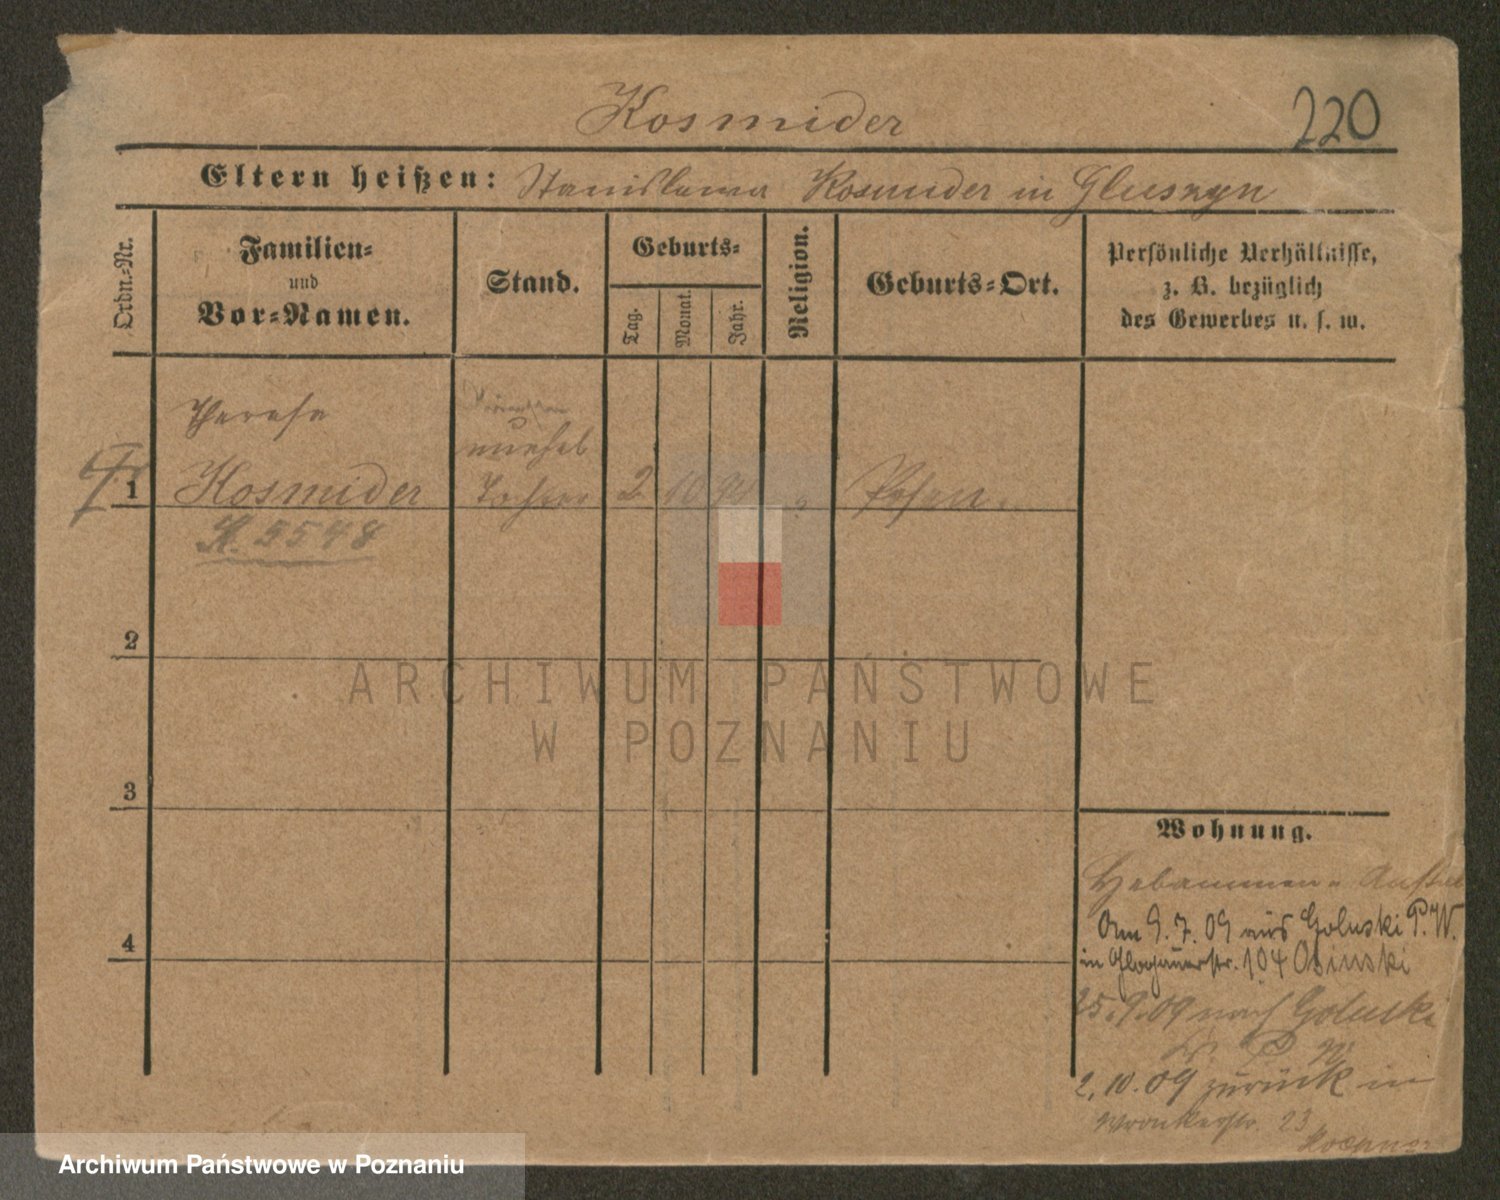 Kosmider
220
Eltern heißen: Stanislawa Kosmider in Gluszyn
Ordn.-Nr.
Familien-
und
Vor-Namen.
Stand.
Geburts-
Tag.
Monat.
Jahr.
Religion.
Geburts-Ort.
Persönliche Verhältnisse,
z. B. bezüglich
des Gewerbes u. s. w.
Therese
unehel
1 Kosmider Tochter 2 10 94 Posen.
K. 5548
2
3
4
Wohnung.
Hebammen-
Am 9.7.09 aus Goluski P.W.
in Glogauerstr. 104 Osinski
25.9.09 nach Goluski
2.10.09 zurück in
Wronkerstr. 23
ARCHIWUM PAŃSTWOWE
W POZNANIU
Archiwum Państwowe w Poznaniu